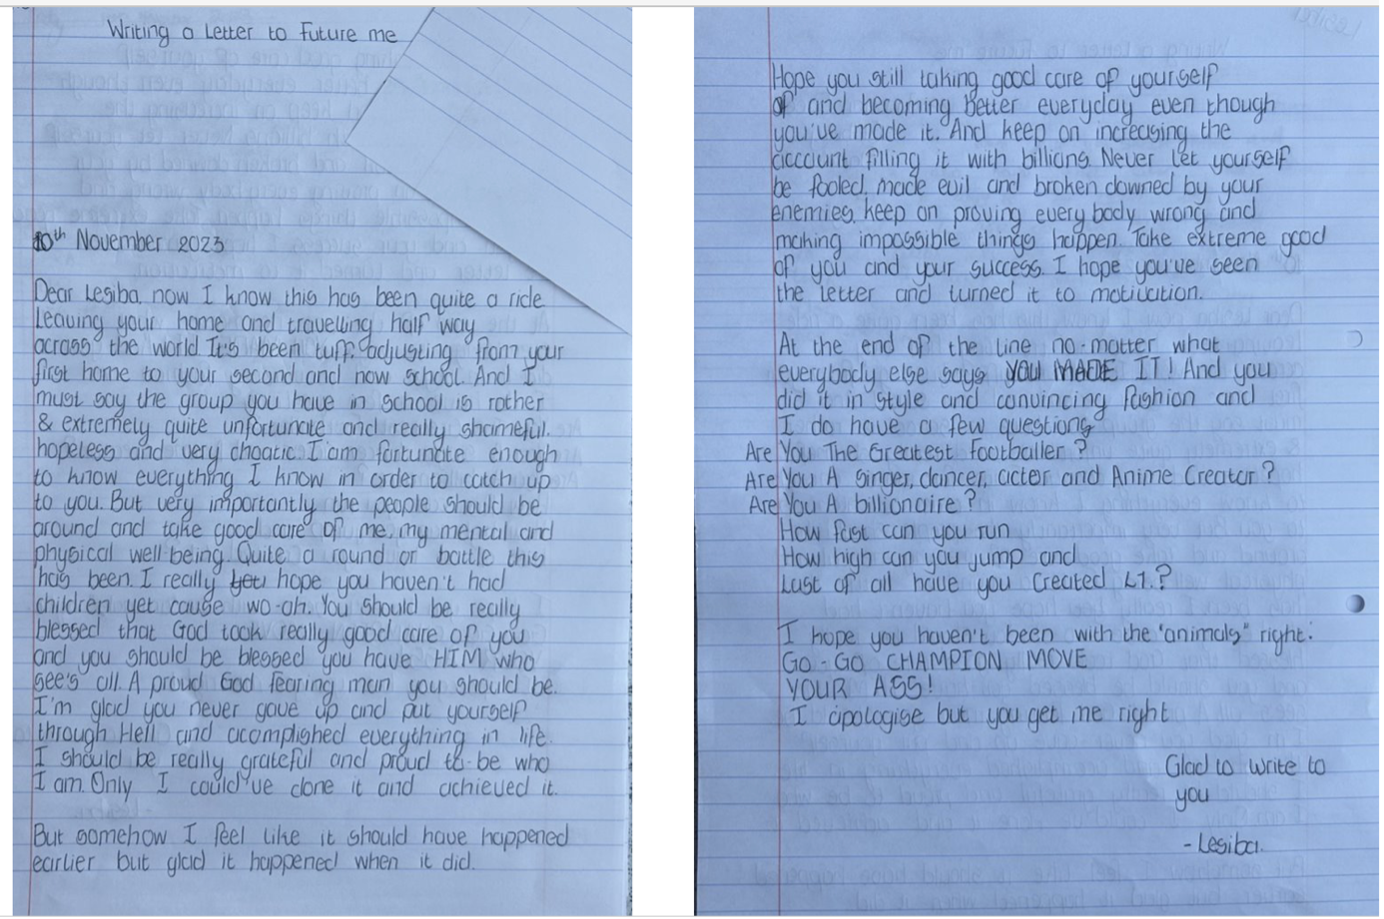 Writing a Letter to Future me
10th November 2023
Dear Lesiba, now I know this has been quite a ride
Leaving your home and travelling half way
across the world It's been tuff adjusting from your
first home to your second and now school. And I
must say the group you have in school is rather
& extremely quite unfortunate and really shameful,
hopeless and very chaotic I am fortunate enough
to know everything I know in order to catch up
to you. But very importantly the people should be
around and take good care of me, my mental and
physical well being. Quite a round or battle this
has been. I really hope you haven't had
children yet cause wo-ah. You should be really
blessed that God took really good care of you
and you should be blessed you have HIM who
see's all. A proud God fearing man you should be.
I'm glad you never gave up and put yourself
through Hell and acomplished everything in life.
I should be really grateful and proud to be who
I am. Only I could've done it and achieved it.
But somehow I feel like it should have happened
earlier but glad it happened when it did.
Hope you still taking good care of yourself
of and becoming better everyday even though
you've made it. And keep on increasing the
account filling it with billions Never let yourself
be fooled, made evil and broken downed by your
enemies, keep on proving every body wrong and
making impossible things happen. Take extreme good
of you and your success. I hope you've seen
the letter and turned it to motivation.
At the end of the line no-matter what
everybody else says YOU MADE IT! And you
did it in style and convincing fashion and
I do have a few questions
Are You The Greatest Footballer?
Are You A singer, dancer, acter and Anime Creator?
Are You A billionaire?
How fast can you run
How high can you jump and
Last of all have you created L1.?
I hope you haven't been with the "animals" right.
GO-GO CHAMPION MOVE
YOUR ASS!
I apologise but you get me right
Glad to write to
you
- Lesiba.